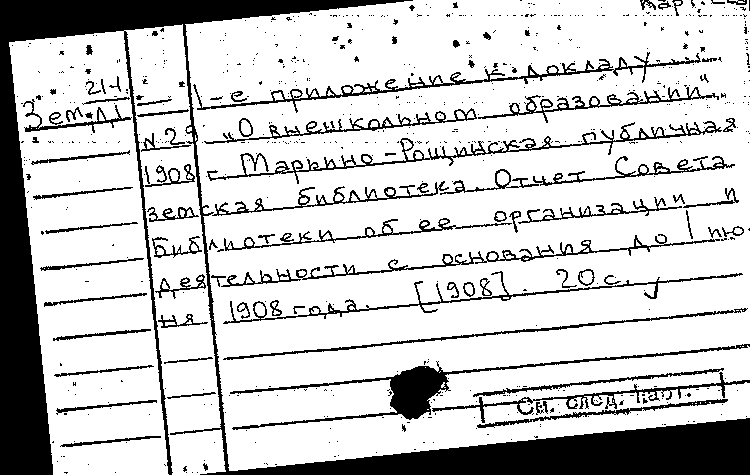 21-1.
Зем.Л1 — 1-е приложение к докладу
N 29 „О внешкольном образовании“.
1908 г. Марьино-Рощинская публичная
земская библиотека. Отчет Совета
Библиотеки об ее организации и
деятельности с основания до 1 ию-
ня 1908 года. [1908]. 20 с. ✓
См. след. карт.